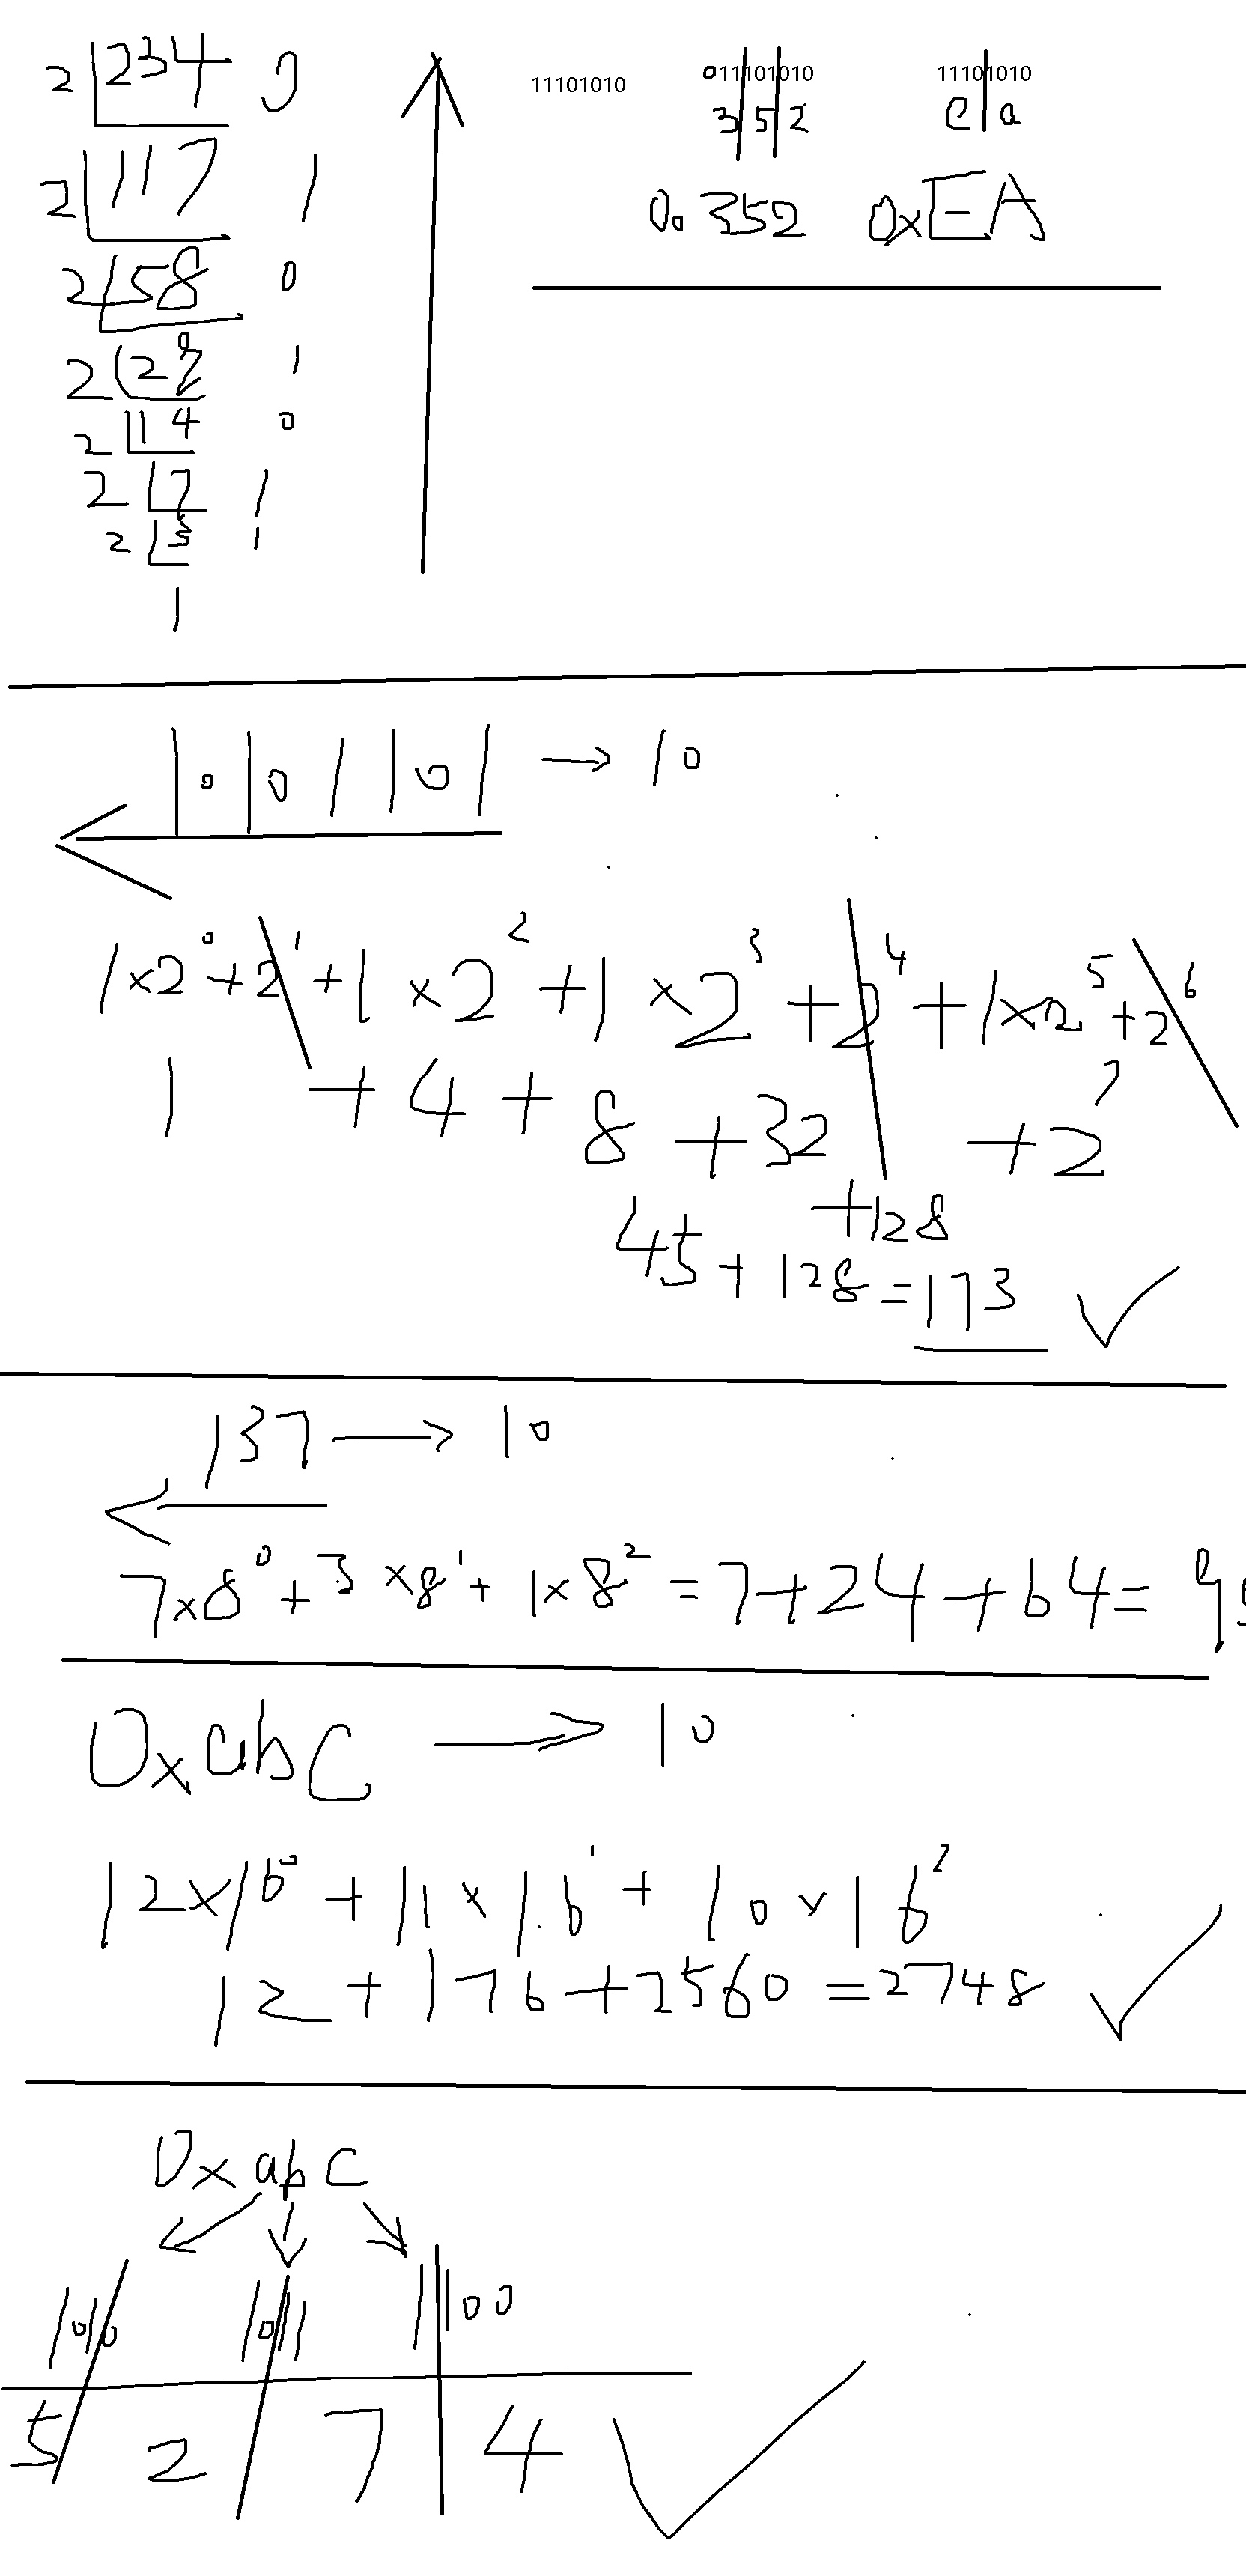 2 234 0
2 117 1
2 58 0
2 29 1
2 14 0
2 7 1
2 3 1
1
11101010
011101010
3 5 2
0o 352
11101010
e a
0xEA
10101101 → 10
1×2⁰+2¹+1×2²+1×2³+2⁴+1×2⁵+2⁶
+2⁷
1+4+8+32
+128
45+128=173
137 → 10
7×8⁰+3×8¹+1×8²=7+24+64=95
0xabC → 10
12×16⁰+11×16¹+10×16²
12+176+2560=2748
0xabC
1010 1011 1100
5 2 7 4